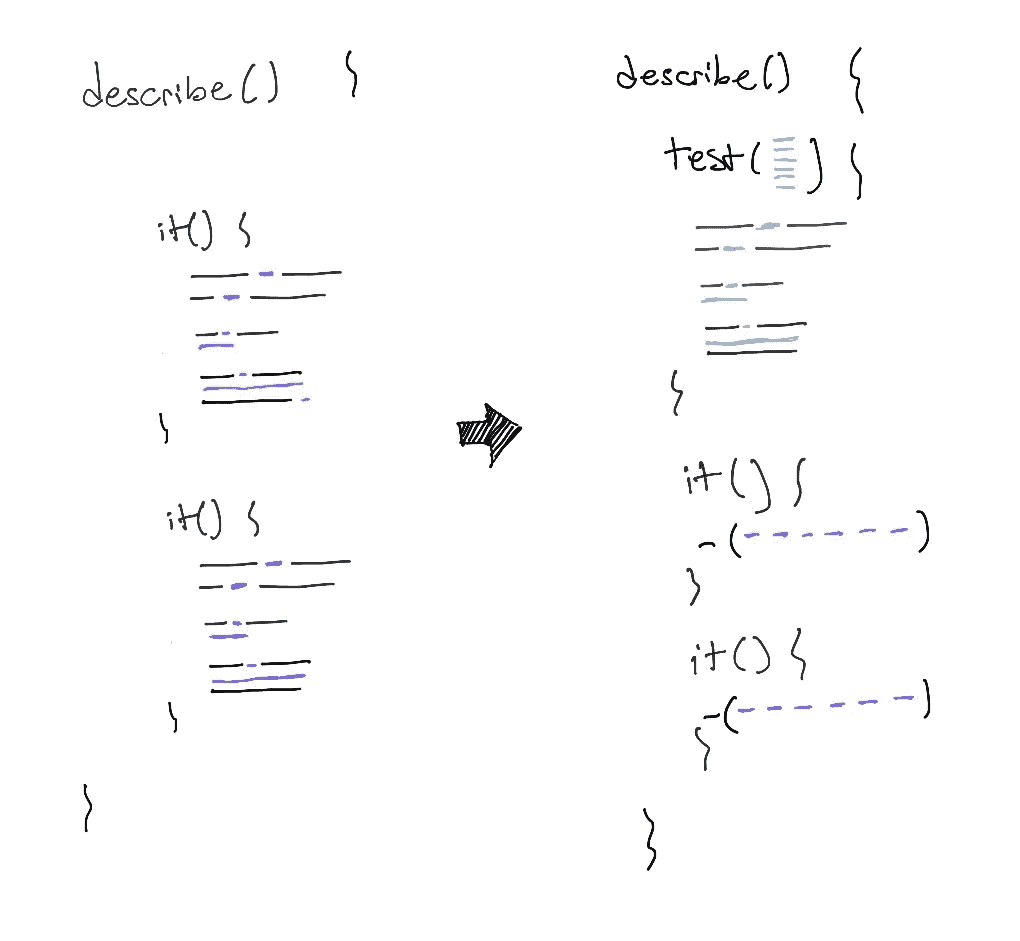 describe() {
it() {
}
it() {
}
}
describe() {
test( ) {
}
it() {
-( )
}
it() {
-( )
}
}